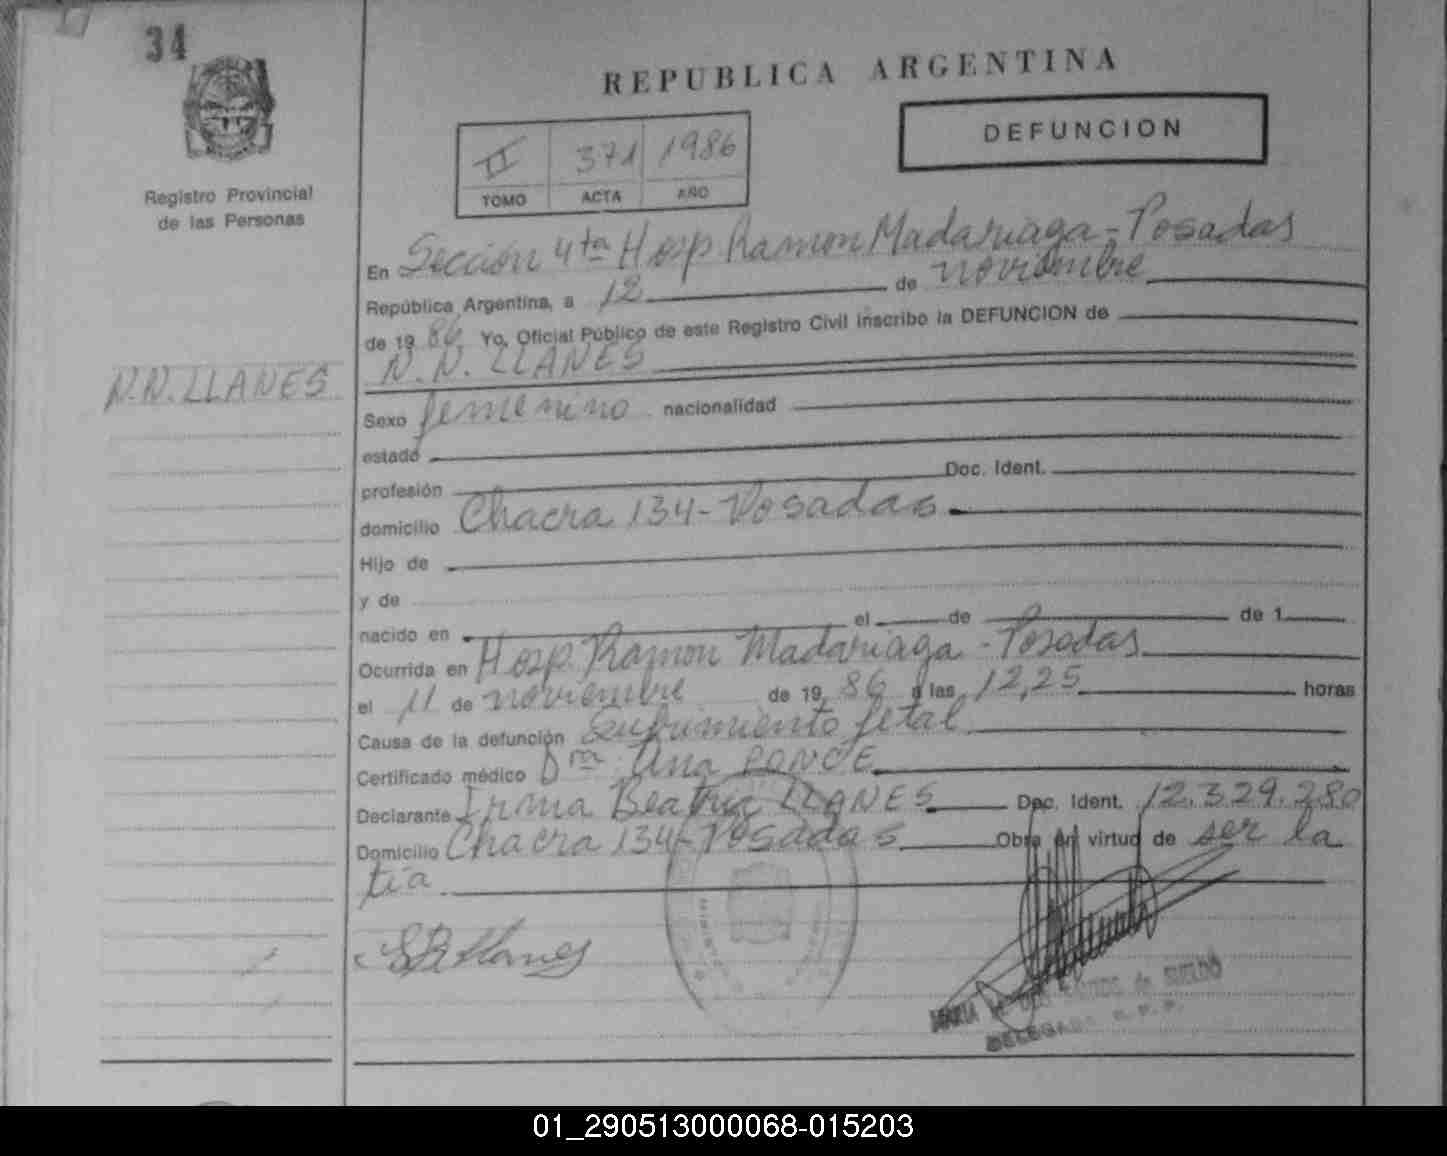 34
REPUBLICA ARGENTINA
DEFUNCION
II 371 1986
TOMO ACTA AÑO
Registro Provincial
de las Personas
En Sección 4ta Hosp Ramon Madariaga - Posadas
República Argentina, a 12 de noviembre
de 19 86 Yo, Oficial Público de este Registro Civil inscribo la DEFUNCION de
N.N. LLANES
N.N. LLANES
Sexo femenino nacionalidad
estado
profesión Doc. Ident.
domicilio Chacra 134 - Posadas
Hijo de
y de
nacido en el de de 1
Ocurrida en Hosp. Ramon Madariaga - Posadas
el 11 de noviembre de 19 86 a las 12,25 horas
Causa de la defunción Sufrimiento fetal
Certificado médico Dra Ana PONCE
Declarante Irma Beatriz LLANES Doc. Ident. 12.329.280
Domicilio Chacra 134 - Posadas Obra en virtud de ser la
tía
Llanes
MARIA de SUELDO
DELEGADA R. P. P.
01_290513000068-015203